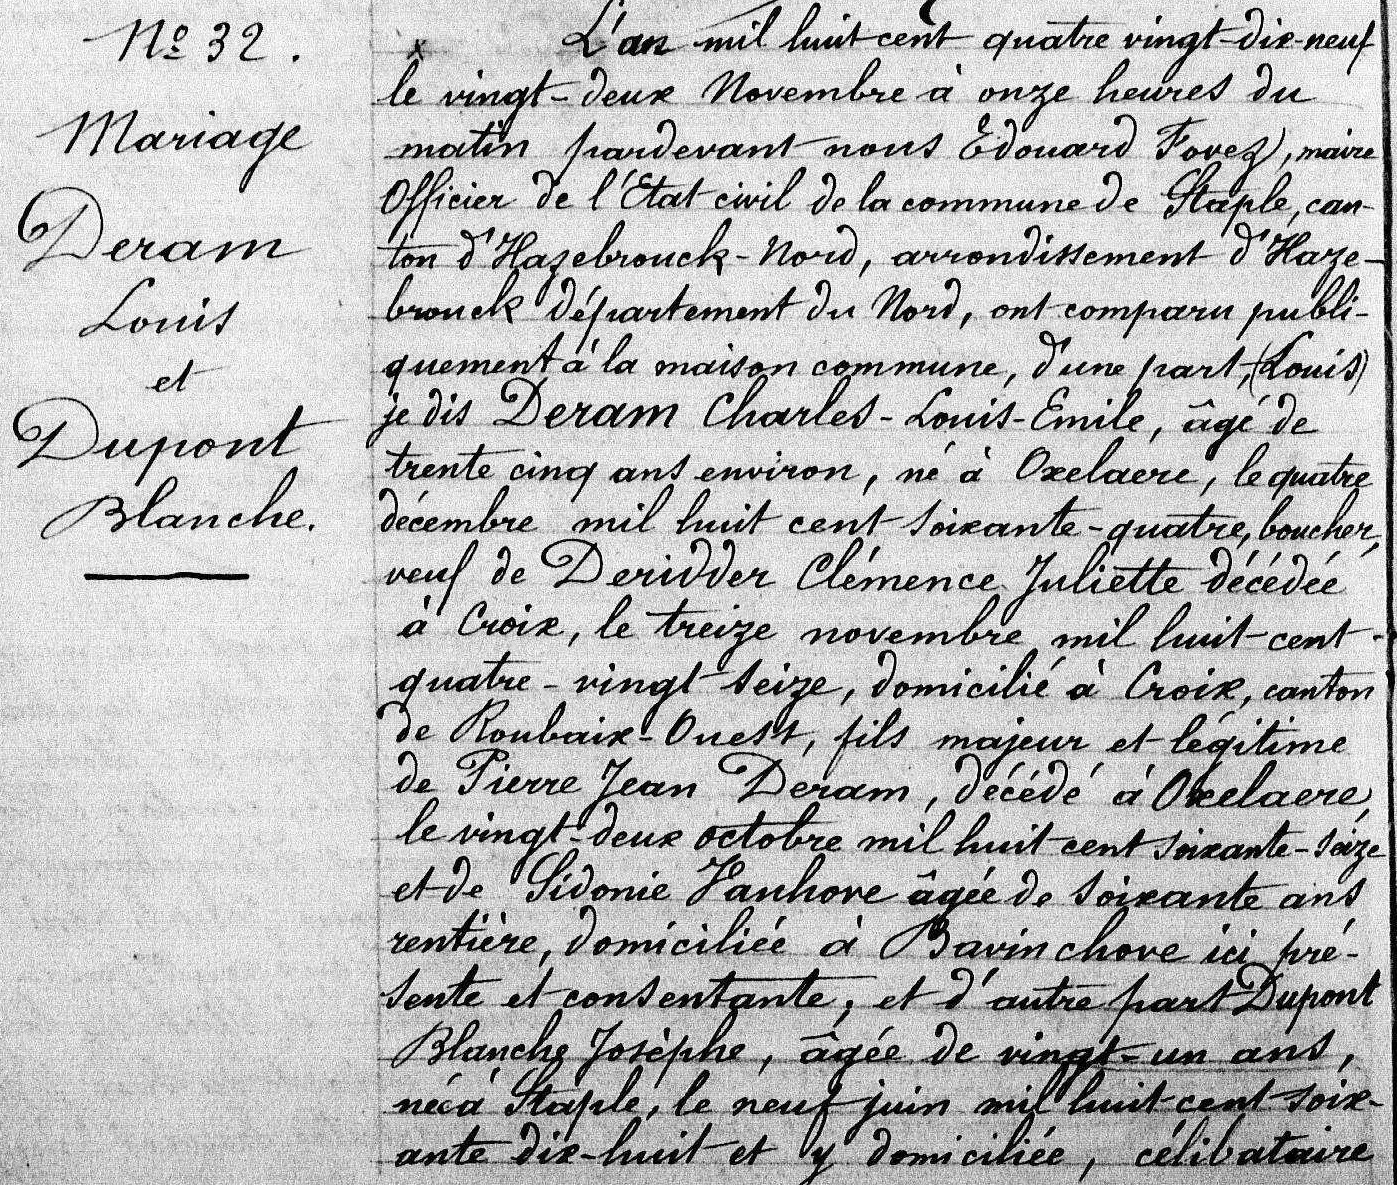 No 32.
Mariage
Deram
Louis
et
Dupont
Blanche.
L'an mil huit cent quatre vingt-dix-neuf
le vingt-deux Novembre à onze heures du
matin pardevant nous Edouard Fovez, maire
Officier de l'Etat civil de la commune de Staple, can-
ton d'Hazebrouck-Nord, arrondissement d'Haze-
brouck département du Nord, ont comparu publi-
quement à la maison commune, d'une part, (Louis)
je dis Deram Charles-Louis-Emile, âgé de
trente cinq ans environ, né à Oxelaere, le quatre
décembre mil huit cent soixante-quatre, boucher,
veuf de Deridder Clémence Juliette décédée
à Croix, le treize novembre mil huit cent-
quatre-vingt seize, domicilié à Croix, canton
de Roubaix-Ouest, fils majeur et légitime
de Pierre Jean Deram, décédé à Oxelaere,
le vingt-deux octobre mil huit cent soixante-seize
et de Sidonie Vanhove âgée de soixante ans
rentière, domiciliée à Bavinchove ici pré-
sente et consentante, et d'autre part Dupont
Blanche Josèphe, âgée de vingt-un ans,
née à Staple, le neuf juin mil huit cent soix-
ante dix-huit et y domiciliée, célibataire